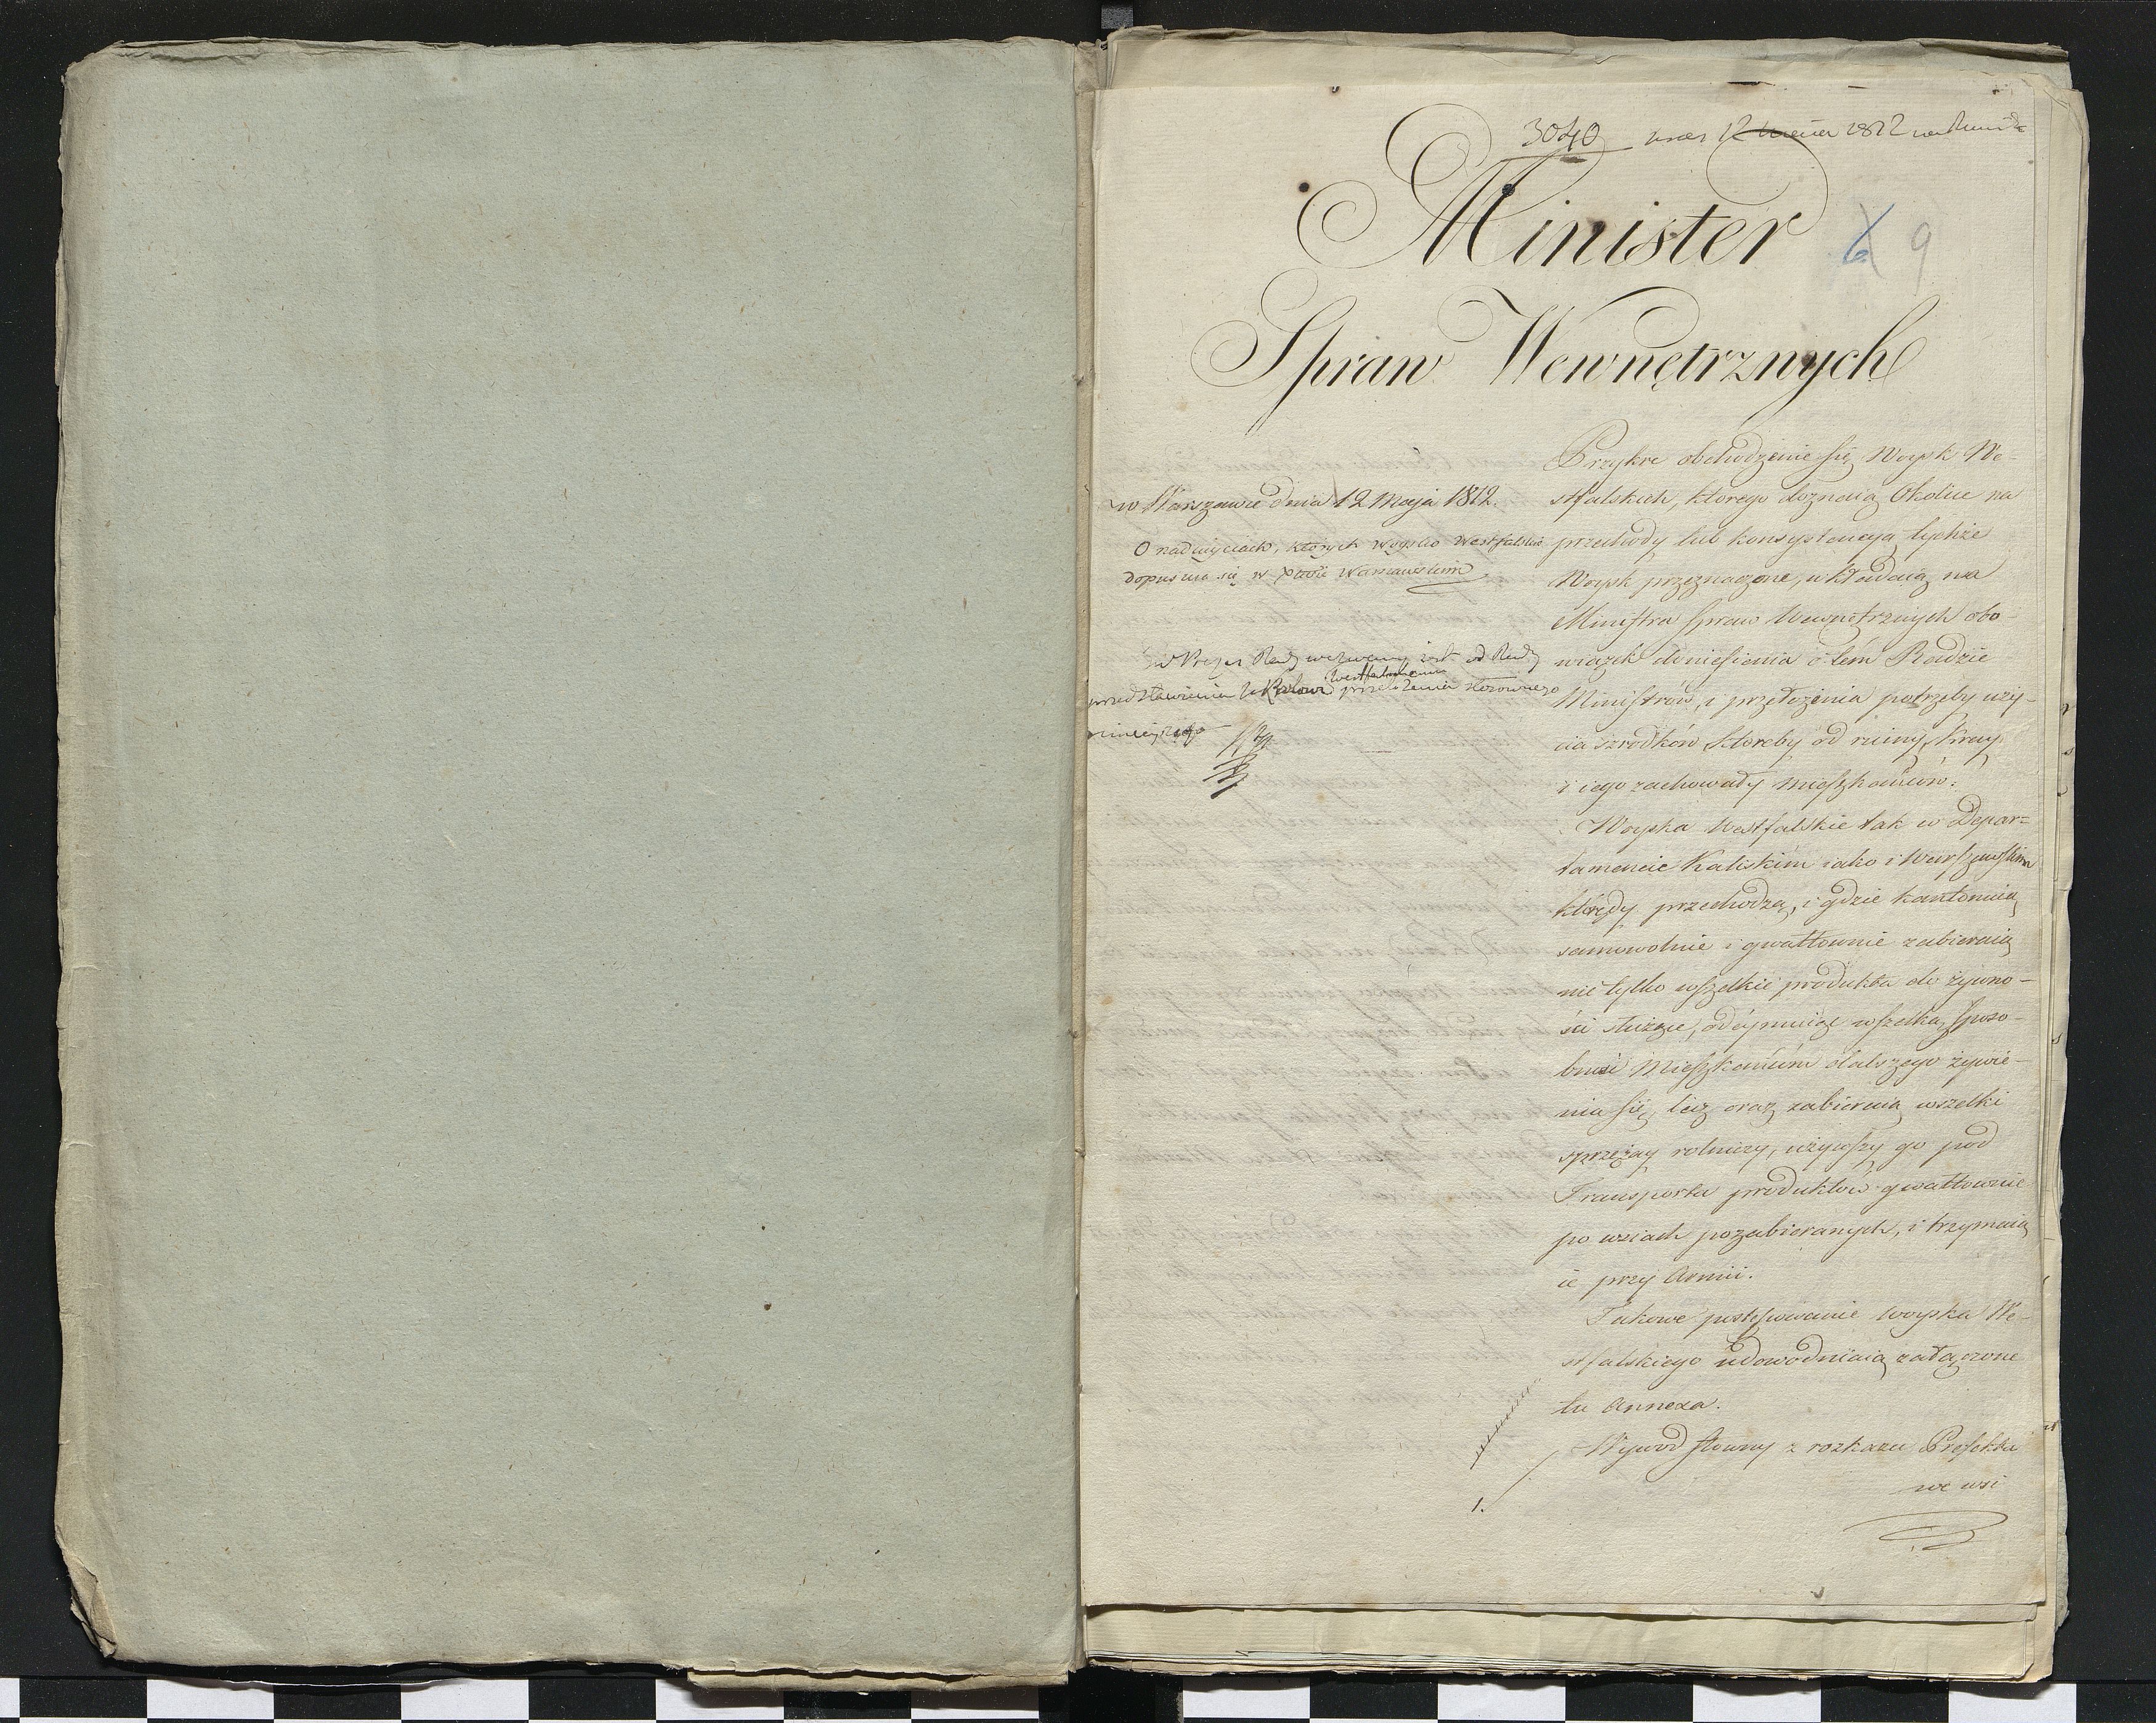 3040 12 1812
Minister
6 9
Spraw Wewnętrznych
w Warszawie dnia 12 Maja 1812.
O nadużyciach, których Woysko Westfalskie
dopuszcza się w Xstwie Warszawskim
Prezes Rady wezwany jest od Rady
przedstawienia Królowi Westfalskiemu przełożenia stosownego
ninieyszego
Przykre obchodzenie się Woysk We-
stfalskich, którego doznaią Okolice na
przechody lub konsystencyą tychże
Woysk przeznaczone, wkładaią na
Ministra Spraw Wewnętrznych obo-
wiązek doniesienia o tém Radzie
Ministrów, i przełożenia potrzeby uży-
cia szrodków, któreby od ruiny Kray
i iego zachowały mieszkańców.
Woyska Westfalskie tak w Depar=
tamencie Kaliskim iako i Warszawskim
którędy przechodzą, i gdzie kantonuią
samowolnie i gwałtownie zabieraią
nie tylko wszelkie produkta do żywno-
ści służące, odeymuiąc wszelką sposo-
bność Mieszkańcom dalszego żywie-
nia się, lecz oraz zabieraią wszelki
sprzężay rolniczy, używszy go pod
Transporta produktów gwałtownie
po wsiach pozabieranych, i trzymaią
ie przy Armii.
Takowe postępowanie woyska We-
stfalskiego udowodniaią załączone
tu Annexa.
1. Wywod słowny z rozkazu Prefekta
we wsi